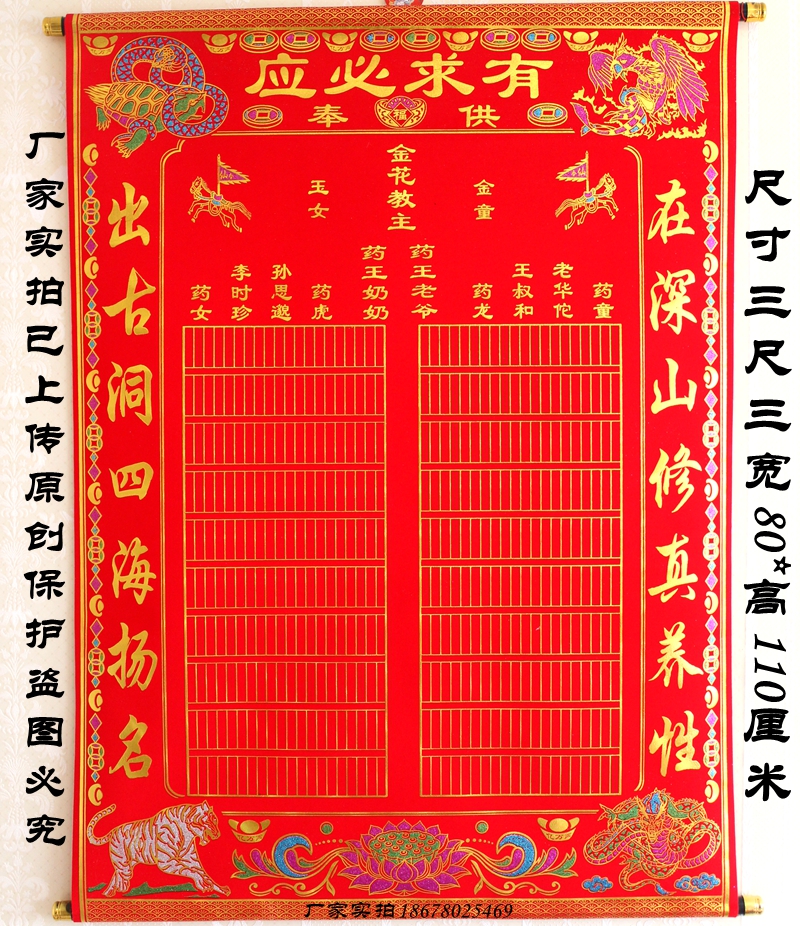 有求必应
供福奉
在深山修真养性
出古洞四海扬名
金花教主
金童
玉女
药王老爷
药王奶奶
药童
老华佗
王叔和
药龙
药虎
孙思邈
李时珍
药女
尺寸三尺三宽80*高110厘米
厂家实拍已上传原创保护盗图必究
厂家实拍18678025469